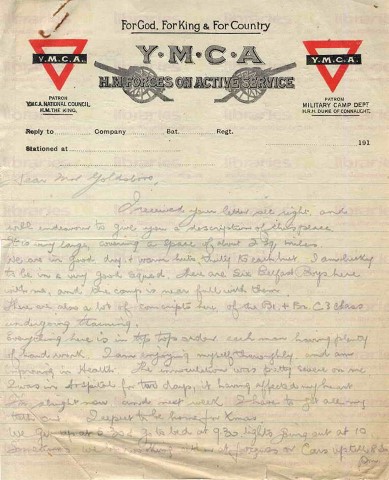 For God, For King & For Country
Y·M·C·A
H.M. FORCES ON ACTIVE SERVICE
Y.M.C.A.
PATRON
Y.M.C.A. NATIONAL COUNCIL
H.M. THE KING.
Y.M.C.A.
PATRON
MILITARY CAMP DEPT
H.R.H. DUKE OF CONNAUGHT.
Reply to Company Bat. Regt.
Stationed at 191
Dear Mrs Goldsboro,
I received your letter all right, and
will endeavour to give you a description of this place
It is very large, covering a space of about 2 miles
We are in good dry & warm huts thirty to each hut. I am lucky
to be in a very good squad, there are six Belfast Boys here
with me, and the camp is near full with them
There are also a lot of conscripts here of the B1 & C3 Class
undergoing training.
Everything here is in tip top order each man having plenty
of hard work. I am enjoying myself thoroughly, and am
improving in Health. The innoculation was pretty severe on me
I was in hospital for two days, it having affected my heart
I'm alright now and next week I have to get all my
I expect to be home for Xmas.
We get up at 6 and go to bed at 9.30 lights going out at 10
Sometimes we